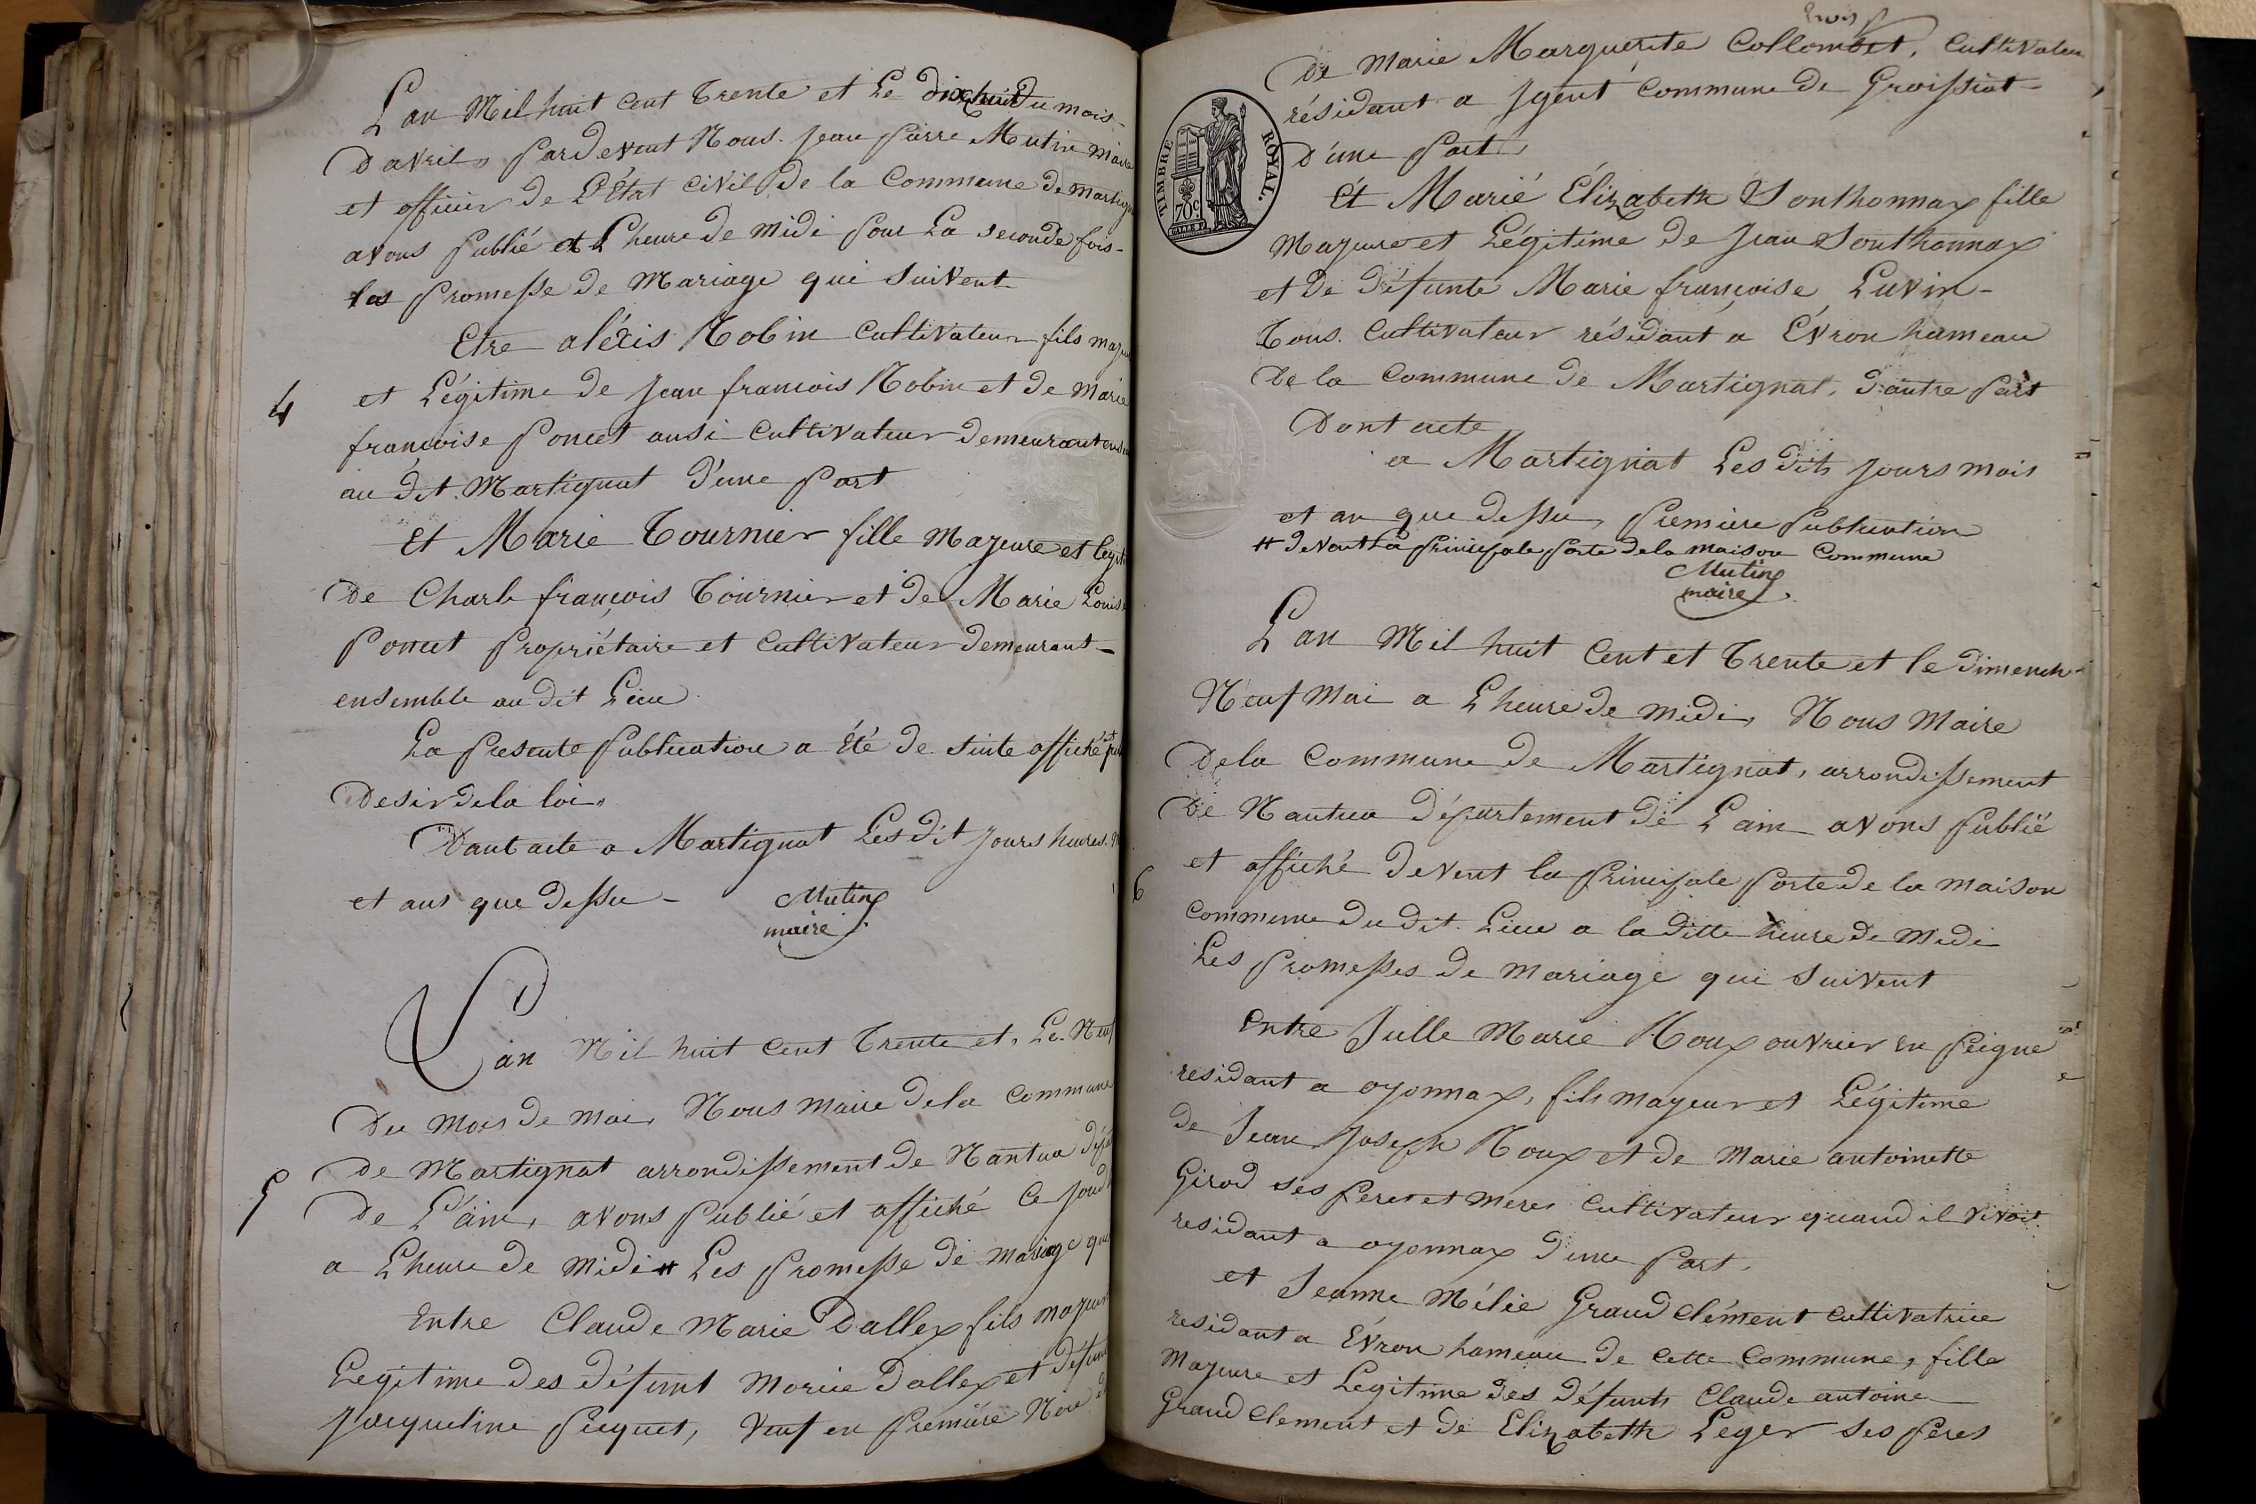 L'an Mil huit cent trente et Le dixhuit Du mois
D'avril, Pardevent Nous Jean Pierre Mutin Maire
et officier de l'État Civil De la Commune De Martign
avons publié à L'heure De Midi pour La seconde fois
les promesse De Mariage qui suivent
Etre aléxis Robin Cultivateur fils maj
4 et Légitime de Jean francois Robin et de Marie
françoise Poncet ausi Cultivateur Demeurant ens
au dit Martignat D'une Part
Et Marie Tournier fille Majeure et legit
De Charle françois Tournier et De Marie Louis
Poncet Propriétaire et Cultivateur Demeurant
ensemble au dit Lieu
La presente Publication a été de suite affiché
Desir de la loi.
Dont acte a Martignat Les dit jours heures
et ans que Dessu
Mutin
maire
L'an Mil huit Cent Trente et, Le Neuf
Du Mois de Mai, Nous Maire de la Commune
De Martignat arrondissement De Nantua dép
5 De L'ain, avons Publié et affiché Ce jourd
a L'heure De Midi # Les Promesse De Mariage que
Entre Claude Marie Dallex fils majeur
Legitime Des défunt Marie Dallex et défunt
Jacqueline Picquet, Veuf en Première Noce
trois
De Marie Marguerite Collombet, Cultivateu
résidant a Jgent Commune De Groissiat
D'une Part
Et Marie Élizabeth Sonthonnax fille
Majeure et Légitime De Jean Sonthonnax
et De Défunte Marie françoise Luvin
Tous Cultivateur résidant a Évron hameau
De la Commune De Martignat, D'autre Part
Dont acte
a Martignat Les dits Jours mois
et an que Dessu, Première Publication
# Devent la Principale Porte De la Maison Commune
Mutin
maire
TIMBRE ROYAL.
70c
L'an Mil huit Cent et Trente et le Dimench
Neuf Mai a L'heure De Midi, Nous Maire
De la Commune De Martignat, arrondissement
De Nantua Département De L'ain avons Publié
et affiché Devent la Principale Porte De la Maison
6 Commune Du dit Lieu a la ditte heure De Midi
Les Promesses De Mariage qui Suivent
Entre Julle Marie Roux ouvrier en Peigne
résidant a oyonnax, fils majeur et Légitime
De Jean Joseph Roux et De Marie antoinette
Girod ses Peres et Meres Cultivateur quand il vivoit
residant a oyonnax D'une Part,
et Jeanne Mélie Grand Clément Cultivatrice
residant a Évron hameau De Cette Commune, fille
Majeure et Légitime Des défunts Claude antoine
Grand Clement et De Elizabeth Leger ses Pères